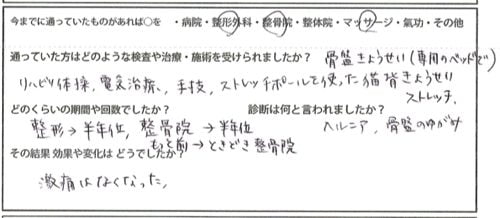 今までに通っていたものがあれば○を ・病院・整形外科・整骨院・整体院・マッサージ・氣功・その他
通っていた方はどのような検査や治療・施術を受けられましたか? 骨盤きょうせい(専用のベッドで)
リハビリ体操、電気治療、手技、ストレッチポールを使った猫背きょうせい
ストレッチ、
どのくらいの期間や回数でしたか? 診断は何と言われましたか?
整形→半年位、整骨院→半年位 ヘルニア、骨盤のゆがみ
もっと前→ときどき整骨院
その結果 効果や変化は どうでしたか?
激痛はなくなった、